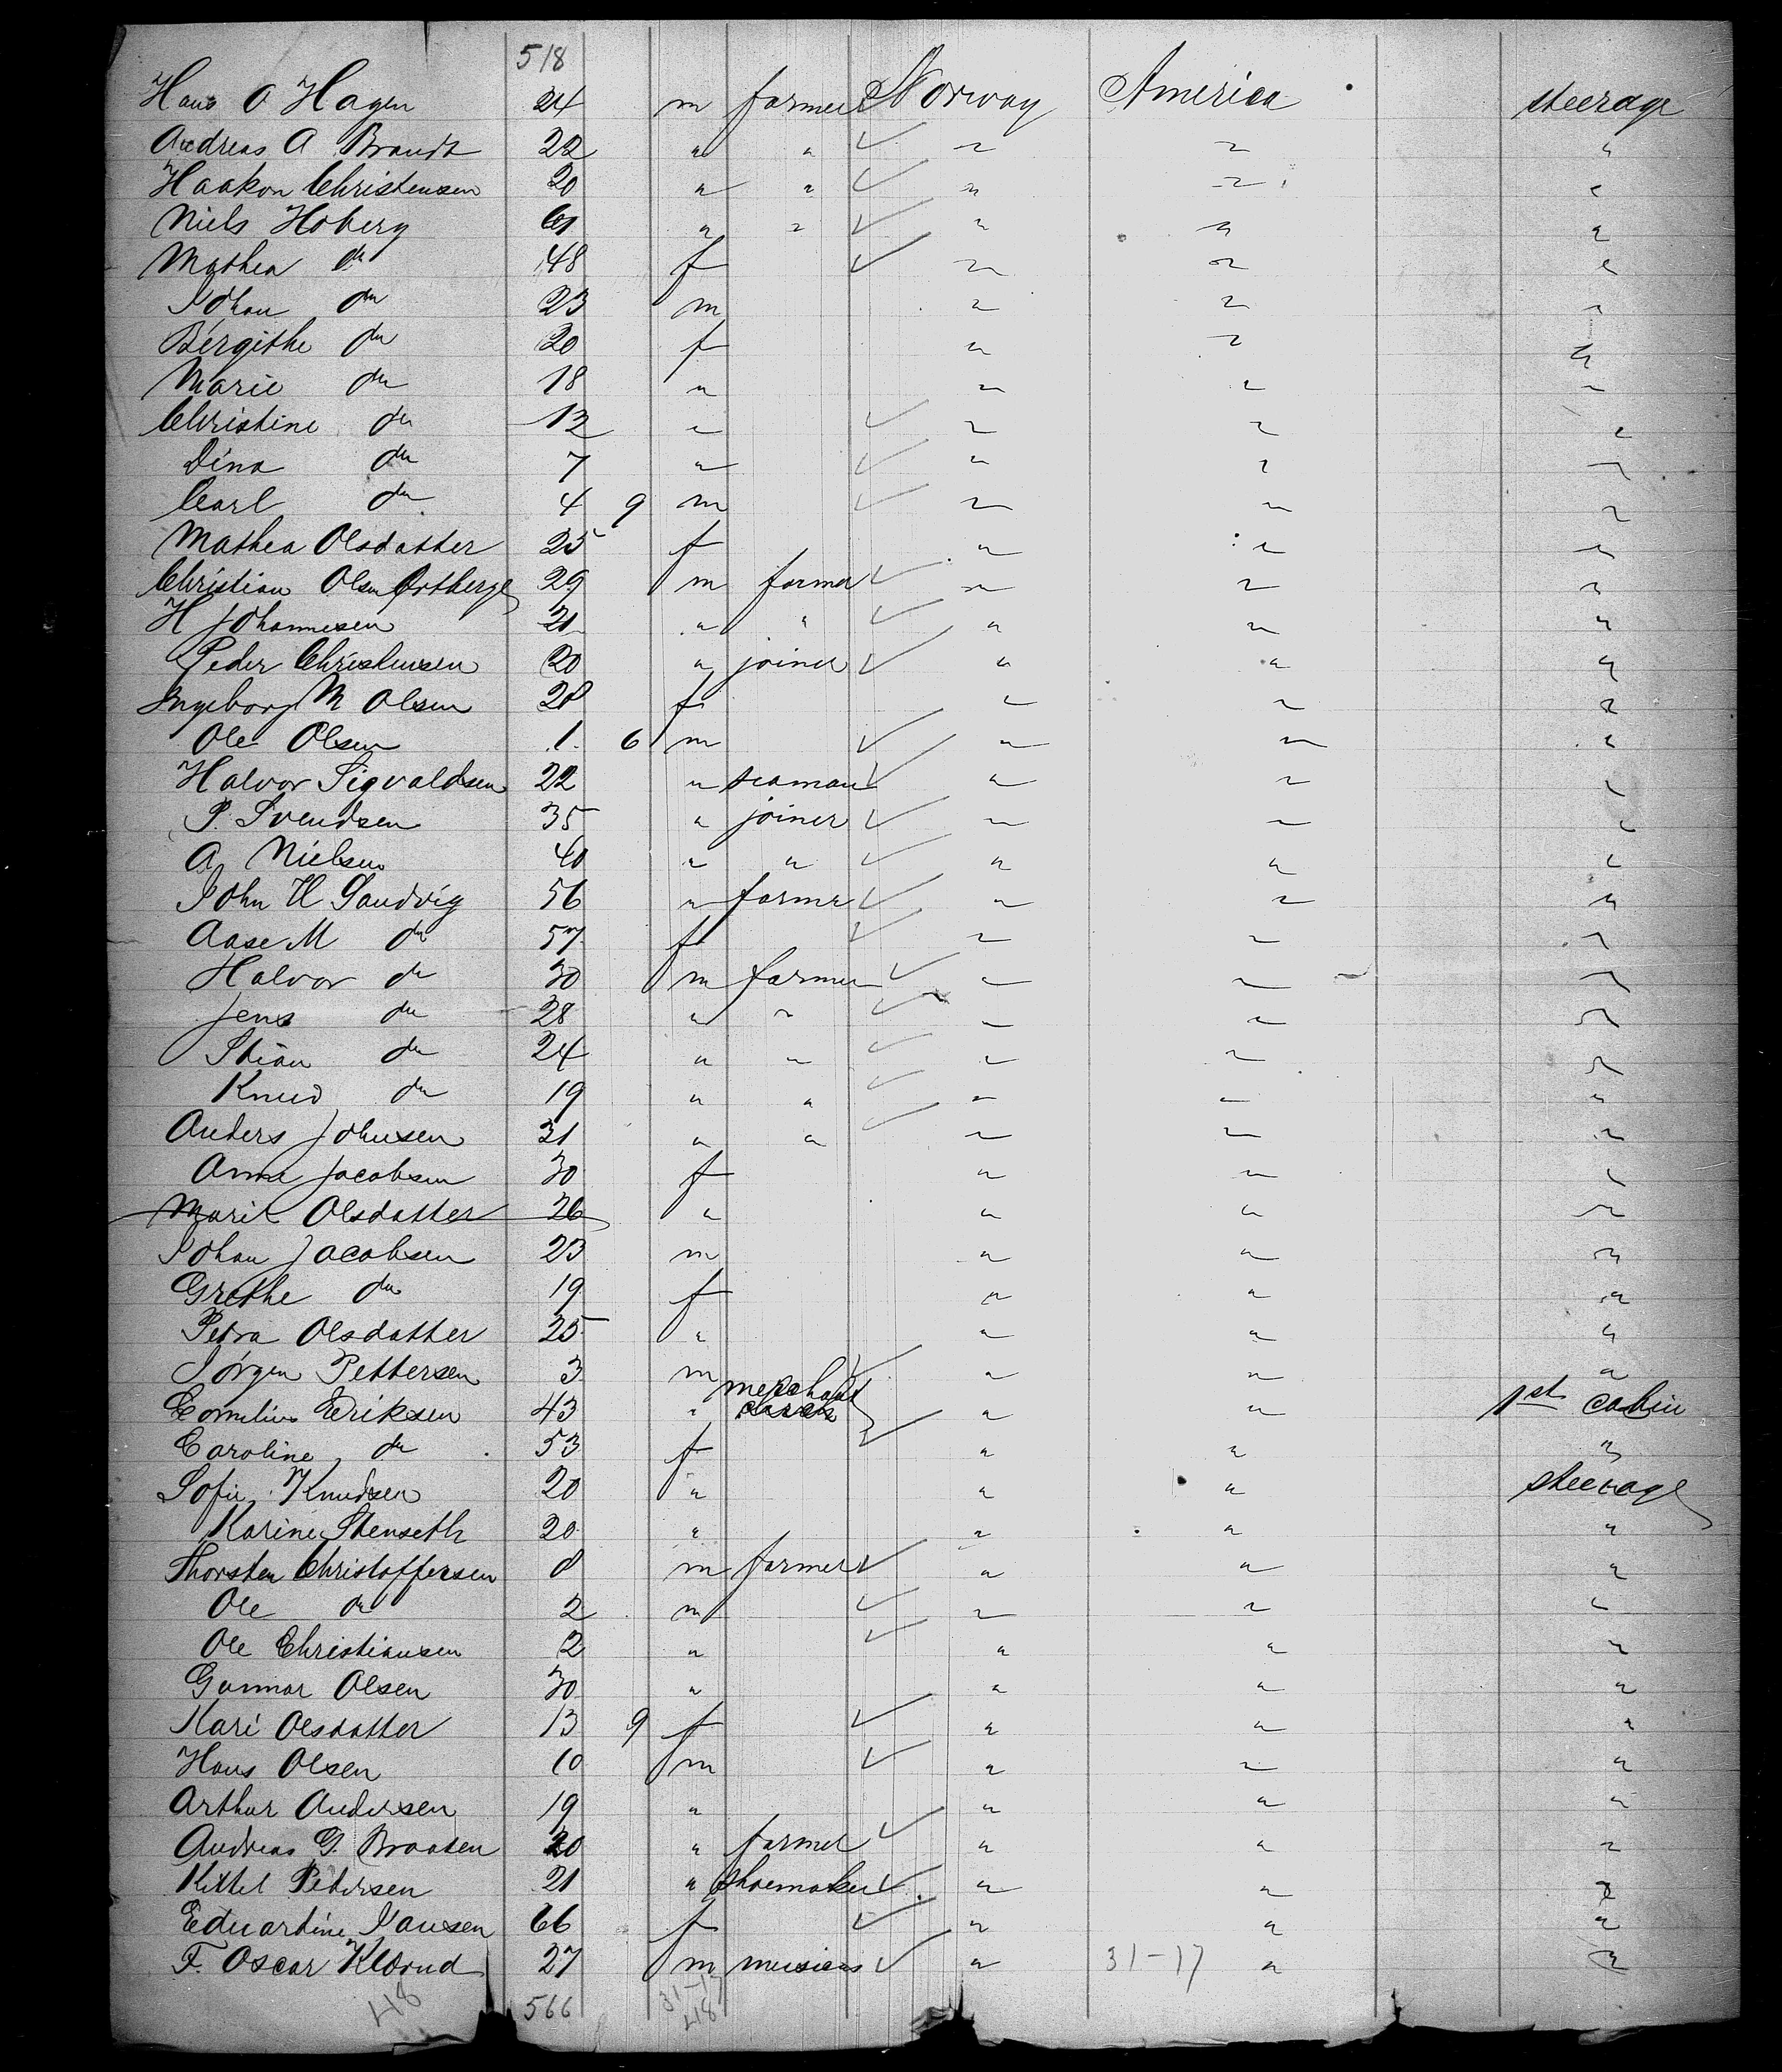 518
Hans O Hagen 24 m farmer Norway America steerage
Andreas A Brandt 22 " " " " "
Haakon Christensen 20 " " " " "
Niels Hoberg 61 " " " " "
Mathea do 48 f " " "
Johan do 23 m " " "
Bergithe do 20 f " " "
Marie do 18 " " " "
Christine do 12 " " " "
Dina do 7 " " " "
Carl do 4 9 m " " "
Mathea Olsdatter 25 f " " "
Christian Olsen 29 m farmer " " "
H Johannesen 21 " " " " "
Peder Christensen 20 " joiner " " "
Ingeborg M Olsen 28 f " " "
Ole Olsen 1 6 m " " "
Halvor Sigvaldsen 22 " seaman " " "
P. Svendsen 35 " joiner " " "
A Nielsen 40 " " " " "
John H Sandvig 56 " farmer " " "
Aase M do 57 f " " "
Halvor do 30 m farmer " " "
Jens do 28 " " " " "
Stian do 24 " " " " "
Knud do 19 " " " " "
Anders Johnsen 31 " " " " "
Anne Jacobsen 30 f " " "
Marit Olsdatter 26 " " " "
Johan Jacobsen 23 m " " "
Grethe do 19 f " " "
Petra Olsdatter 25 " " " "
Jörgen Pettersen 3 m " " "
merchant
Cornelius Eriksen 43 " " " 1st cabin
Caroline do 53 f " " "
Sofie Knudsen 20 " " " steerage
Karine Stenseth 20 " " " "
Thorsten Christoffersen m farmer " " "
Ole do 2 m " " "
Ole Christiansen 2 " " " "
Gunnar Olsen 30 " " " "
Kari Olsdatter 13 9 f " " "
Hans Olsen 10 m " " "
Arthur Andersen 19 " " " "
Andreas G. Braaten 20 " farmer " " "
Kittel Pedersen 21 " shoemaker " " "
Eduardine Jansen 66 f " " "
F. Oscar Klörud 27 m musicus " 31-17 " "
418 566 31-17
418